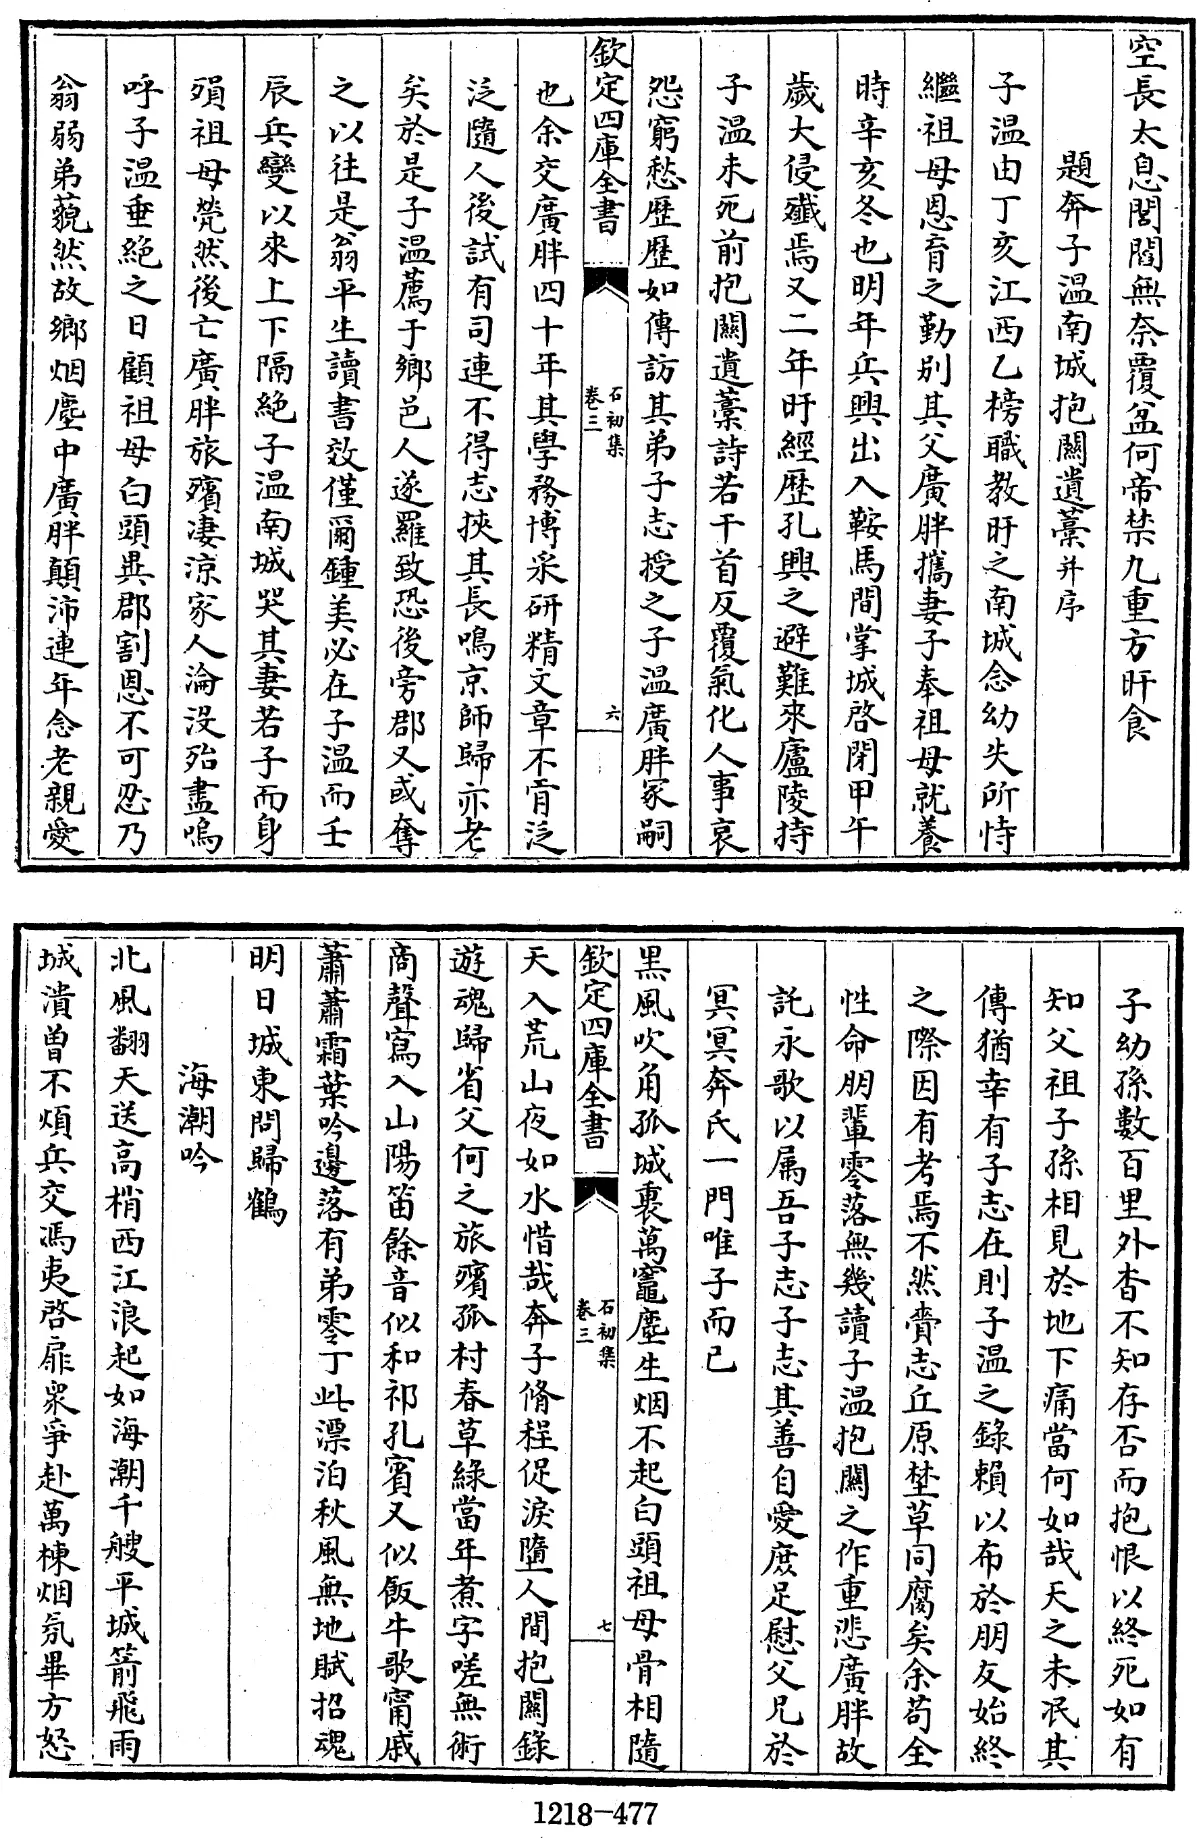 空長太息閶闔無奈覆盆何帝禁九重方旰食
題奔子溫南城抱關遺藁并序
子溫由丁亥江西乙榜職教旴之南城念幼失所恃
繼祖母恩育之勤別其父廣胖攜妻子奉祖母就養
時辛亥冬也明年兵興出入鞍馬間掌城啓閉甲午
歲大侵殲焉又二年旴經歴孔興之避難來廬陵持
子溫未死前抱關遺藁詩若干首反覆氣化人事哀
怨窮愁歴歴如傳訪其弟子志授之子溫廣胖冢嗣
欽定四庫全書
石初集
卷三
六
也余交廣胖四十年其學務博采研精文章不肯泛
泛隨人後試有司連不得志挾其長鳴京師歸亦老
矣於是子溫薦于鄉邑人遂羅致恐後旁郡又或奪
之以往是翁平生讀書效僅爾鍾美必在子溫而壬
辰兵變以來上下隔絶子溫南城哭其妻若子而身
殞祖母煢然後亡廣胖旅殯凄涼家人淪沒殆盡嗚
呼子溫垂絶之日顧祖母白頭異郡割恩不可忍乃
翁弱弟藐然故鄉烟塵中廣胖顛沛連年念老親愛
子幼孫數百里外杳不知存否而抱恨以終死如有
知父祖子孫相見於地下痛當何如哉天之未泯其
傳猶幸有子志在則子溫之錄賴以布於朋友始終
之際因有考焉不然賫志丘原埜草同腐矣余苟全
性命朋輩零落無幾讀子溫抱關之作重悲廣胖故
託永歌以属吾子志子志其善自愛庶足慰父兄於
冥冥奔氏一門唯子而已
黒風吹角孤城裏萬竈塵生烟不起白頭祖母骨相隨
欽定四庫全書
石初集
卷三
七
天入荒山夜如水惜哉奔子脩程促淚墮人間抱關錄
遊魂歸省父何之旅殯孤村春草綠當年煮字嗟無術
商聲寫入山陽笛餘音似和祁孔賓又似飯牛歌甯戚
蕭蕭霜葉吟邊落有弟零丁此漂泊秋風無地賦招魂
明日城東問歸鶴
海潮吟
北風翻天送高梢西江浪起如海潮千艘平城箭飛雨
城潰曾不煩兵交馮夷啓扉衆爭赴萬棟烟氛畢方怒
1218-477